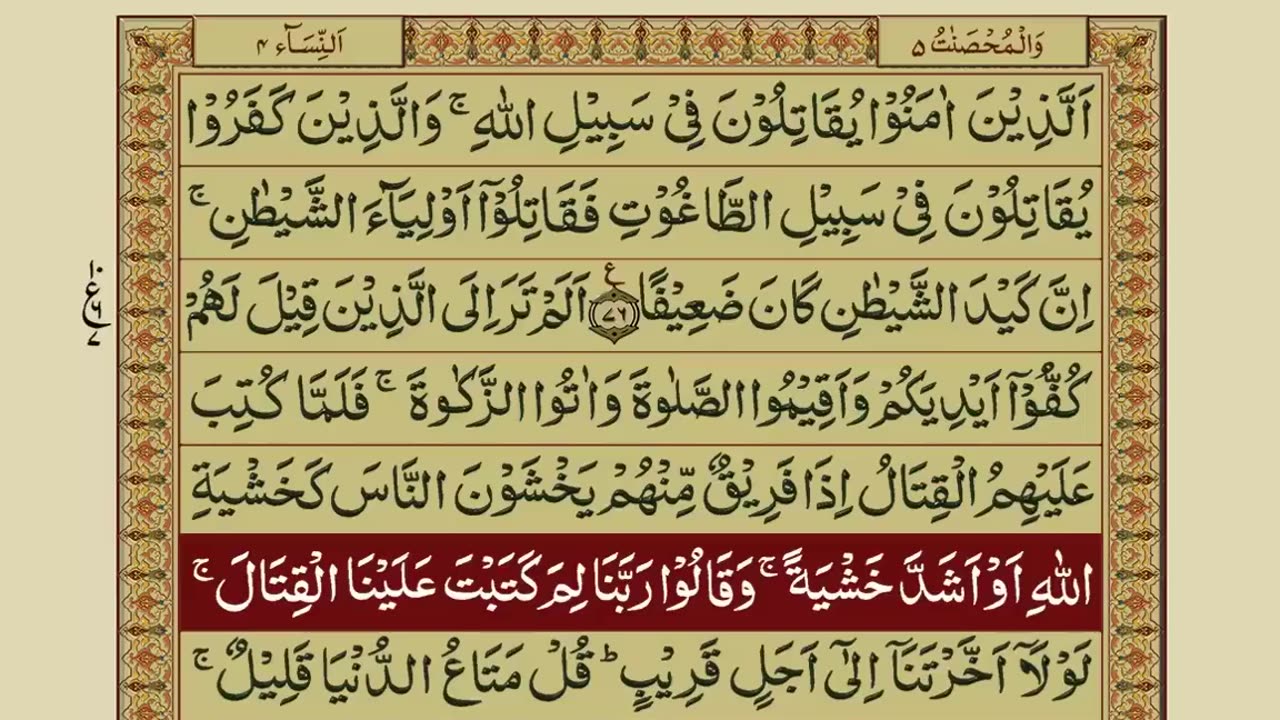 وَالْمُحْصَنٰتُ ۵
اَلنِّسَآء ۴
اَلَّذِيْنَ اٰمَنُوْا يُقَاتِلُوْنَ فِيْ سَبِيْلِ اللّٰهِ ۚ وَالَّذِيْنَ كَفَرُوْا
يُقَاتِلُوْنَ فِيْ سَبِيْلِ الطَّاغُوْتِ فَقَاتِلُوْٓا اَوْلِيَآءَ الشَّيْطٰنِ ۚ
اِنَّ كَيْدَ الشَّيْطٰنِ كَانَ ضَعِيْفًا ع ﴿۷۶﴾ اَلَمْ تَرَ اِلَى الَّذِيْنَ قِيْلَ لَهُمْ
۱۰
ع
۶
۷
كُفُّوْٓا اَيْدِيَكُمْ وَاَقِيْمُوا الصَّلٰوةَ وَاٰتُوا الزَّكٰوةَ ۚ فَلَمَّا كُتِبَ
عَلَيْهِمُ الْقِتَالُ اِذَا فَرِيْقٌ مِّنْهُمْ يَخْشَوْنَ النَّاسَ كَخَشْيَةِ
اللّٰهِ اَوْ اَشَدَّ خَشْيَةً ۚ وَقَالُوْا رَبَّنَا لِمَ كَتَبْتَ عَلَيْنَا الْقِتَالَ ۚ
لَوْلَآ اَخَّرْتَنَآ اِلٰٓى اَجَلٍ قَرِيْبٍ ؕ قُلْ مَتَاعُ الدُّنْيَا قَلِيْلٌ ۚ